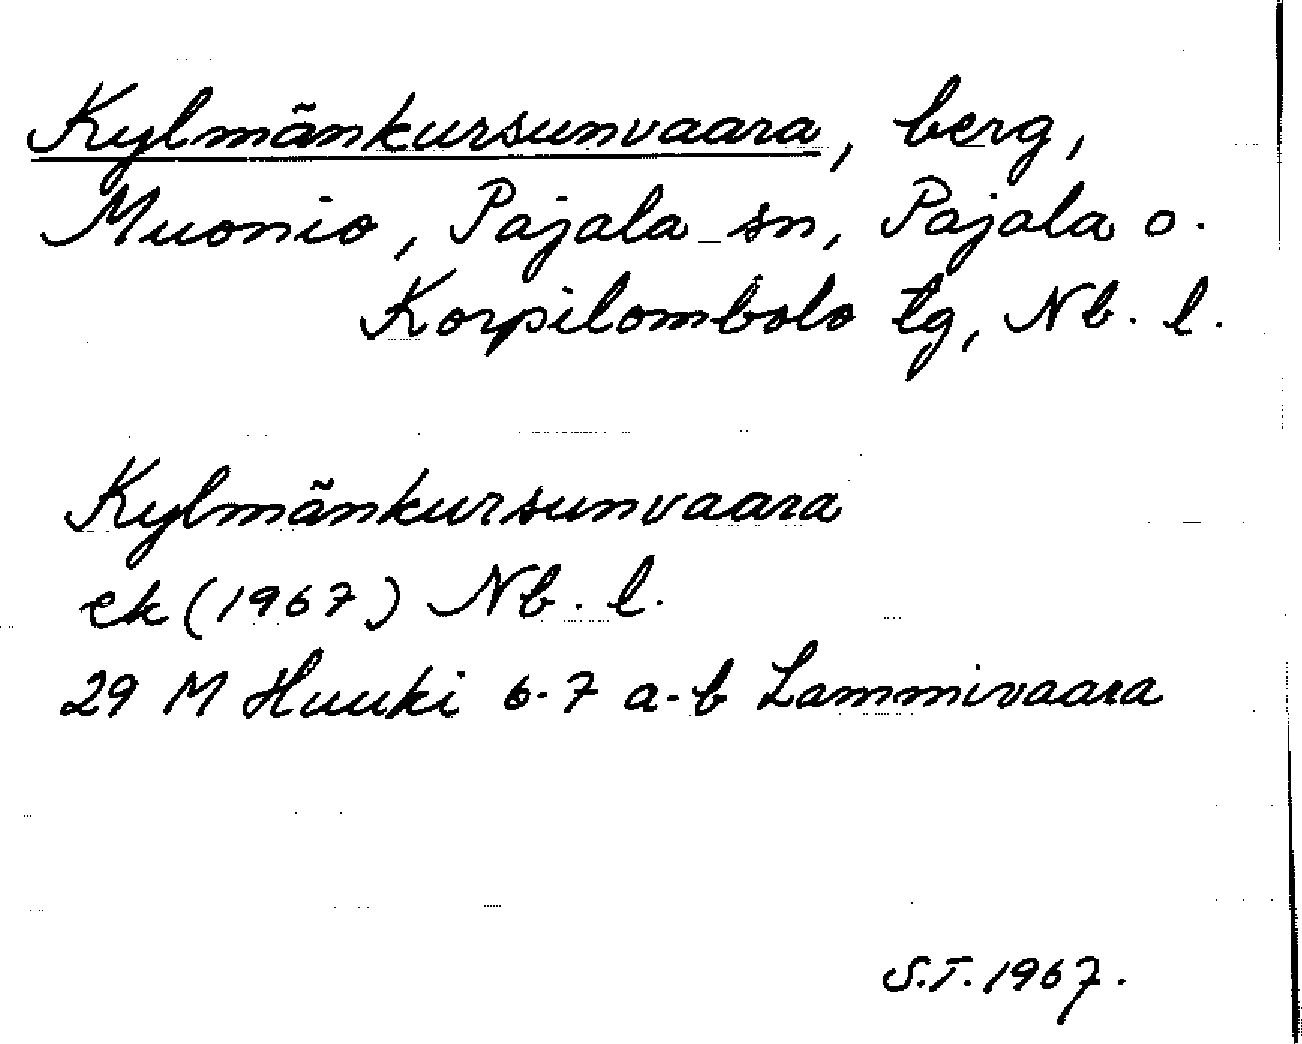 Kylmänkursunvaara, berg,
Muonio, Pajala sn, Pajala o.
Korpilombolo tg, Nb. l.
Kylmänkursunvaara
ek (1967) Nb. l.
29 M Huuki 6-7 a-b Lammivaara
S.T. 1967.